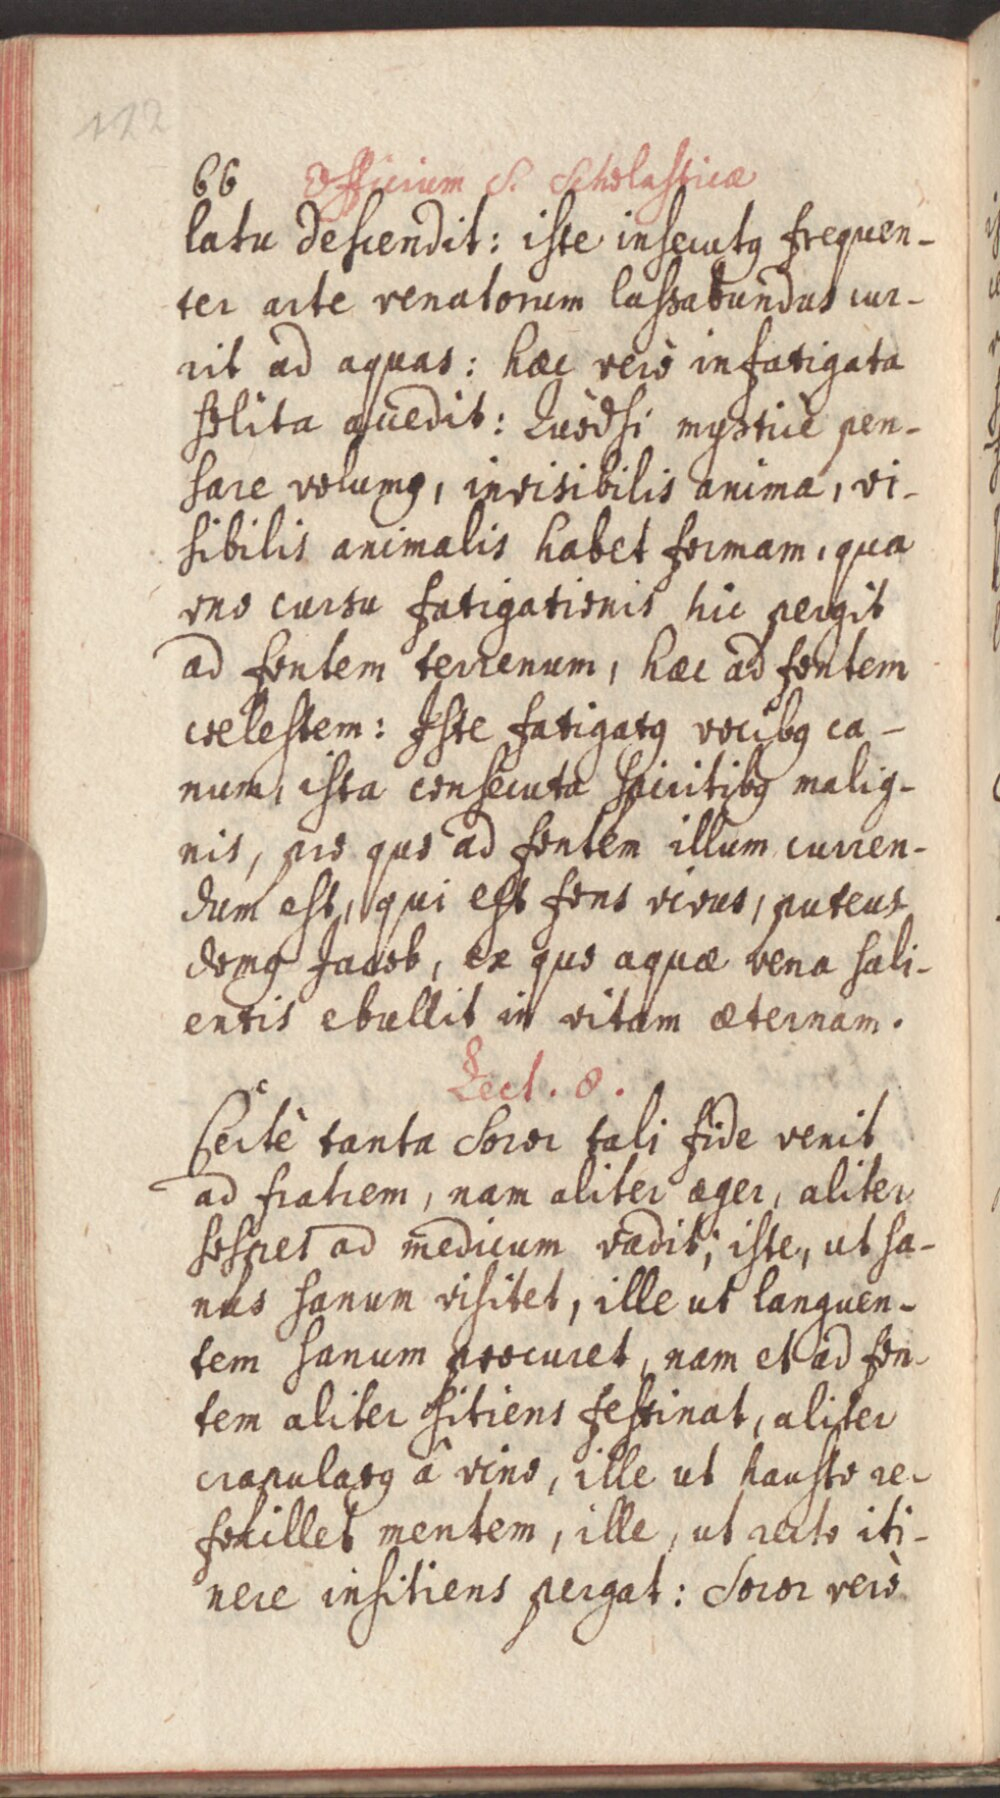 122
66 Officium S. Scholasticæ
latu descendit: iste insecutꝯ frequen-
ter arte venatorum lassabundus cur-
rit ad aquas: hæc verò infatigata
solita accedit: Quòdsi mysticè pen-
sare volumꝯ, invisibilis anima, vi-
sibilis animalis habet formam, qua
uno cursu fatigationis hic pergit
ad fontem terrenum, hæc ad fontem
coelestem: Iste fatigatꝯ vocibꝯ ca-
num, ista consecuta spiritibꝯ malig-
nis, pro quo ad fontem illum curren-
dum est, qui est fons vivus, puteus
domꝯ Jacob, ex quo aquæ vena sali-
entis ebullit in vitam æternam.
Lect. 8.
Certè tanta Soror tali fide venit
ad fratrem, nam aliter æger, aliter
sospes ad medicum vadit; iste, ut sa-
nus sanum visitet, ille ut languen-
tem sanum procuret, nam et ad fon-
tem aliter sitiens festinat, aliter
crapulatꝯ â vino, ille ut hausto re-
focillet mentem, ille, ut recto iti-
nere insitiens pergat: Soror verò